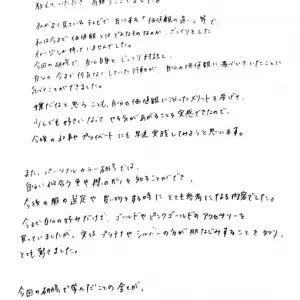 教えていただき 有難うございました。
私がよく見ているテレビで耳にする「価値観の違い」等で、
私は今まで価値観とはどんなものなのか、ざっくりとした
イメージしか持っていませんでした。
今回の研修で、自分自身とじっくり対話し、
自分の今まで何気なくしていた行動が、自分の価値観に基づいていたことに
気づくことができました。
嫌だなと思うことも、自分の価値観に沿ったメリットを挙げて、
少しでも好きになって やる気が上がることを実感できたので、
今後の仕事やプライベートにも早速実践してみようと思います。
また、パーソナルカラー研修では、
自分に似合う色や襟のガラを知ることができ、
今後の服の選定や買い物をする時にとても参考になる内容でした。
今まで自分の好みだけで、ゴールドやピンクゴールドのアクセサリーを
買っていましたが、実はプラチナやシルバーの方が肌なじみすることを知り、
とても驚きました。
今回の研修で学んだことの全てが、